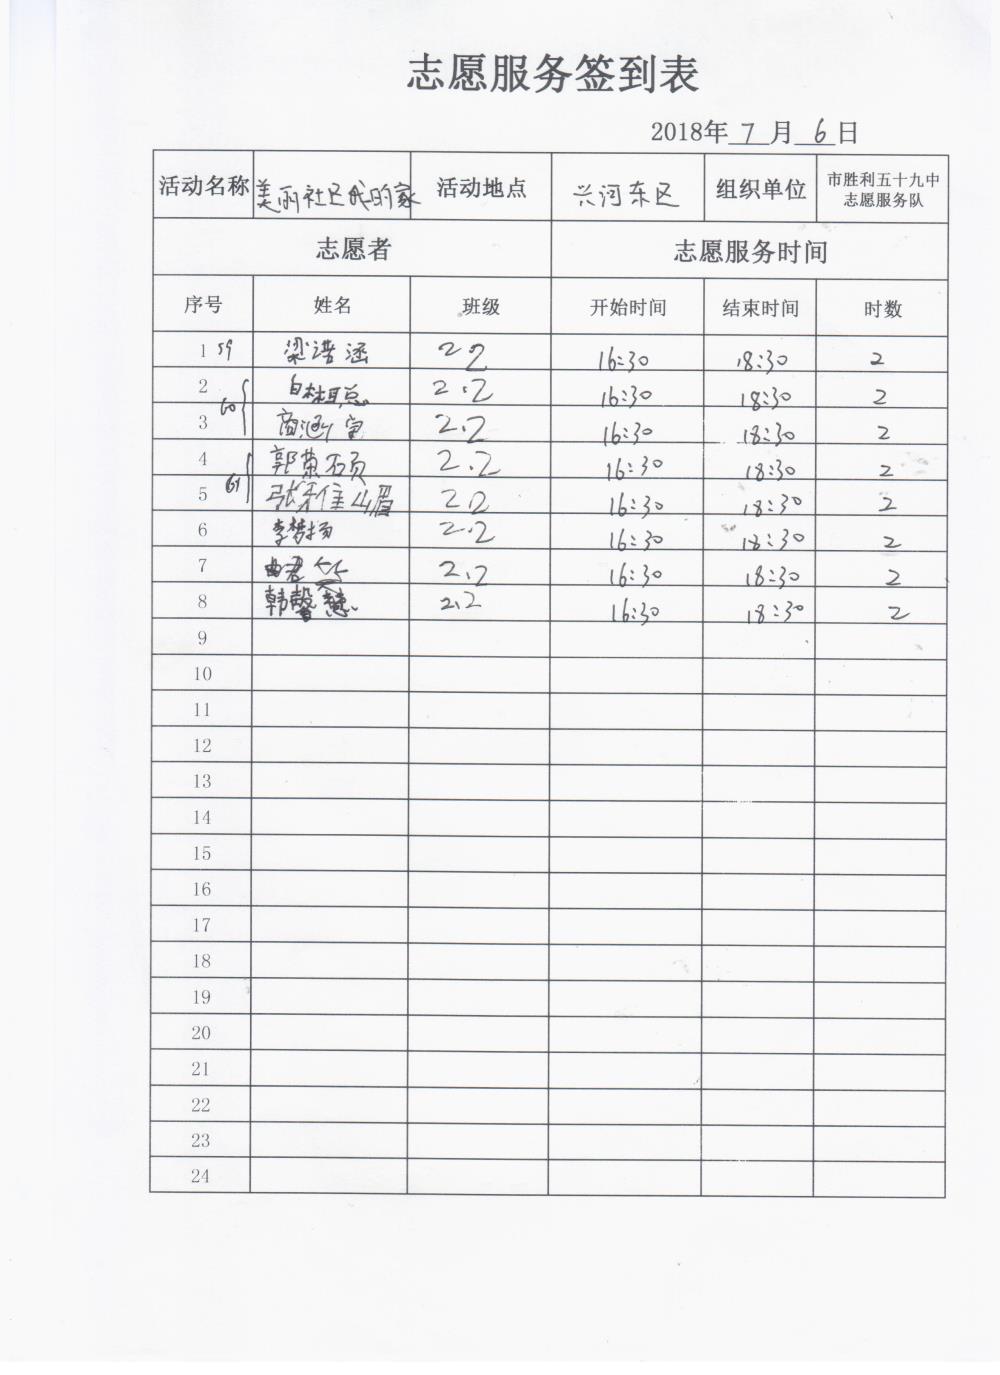 志愿服务签到表
2018年 7 月 6 日
活动名称 美丽社区我的家 活动地点 兴河东区 组织单位 市胜利五十九中志愿服务队
志愿者 志愿服务时间
序号 姓名 班级 开始时间 结束时间 时数
1 59 梁语涵 2 2 16:30 18:30 2
2 2.2 16:30 18:30 2
60
3 商涵 2.2 16:30 18:30 2
4 郭荣硕 2.2 16:30 18:30 2
61
5 张 2.2 16:30 18:30 2
6 李梦扬 2.2 16:30 18:30 2
7 曲君竹 2.2 16:30 18:30 2
8 韩馨慧 2.2 16:30 18:30 2
9
10
11
12
13
14
15
16
17
18
19
20
21
22
23
24